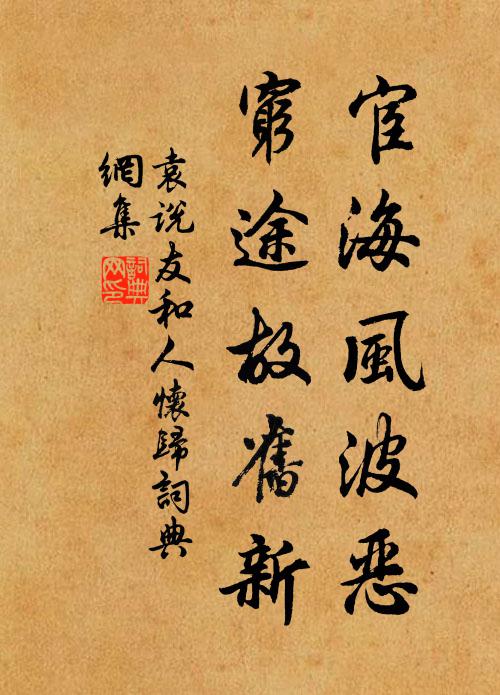 宦海風波惡
窮途故舊新
袁說友和人懷歸詞典
網集
詞典
网印